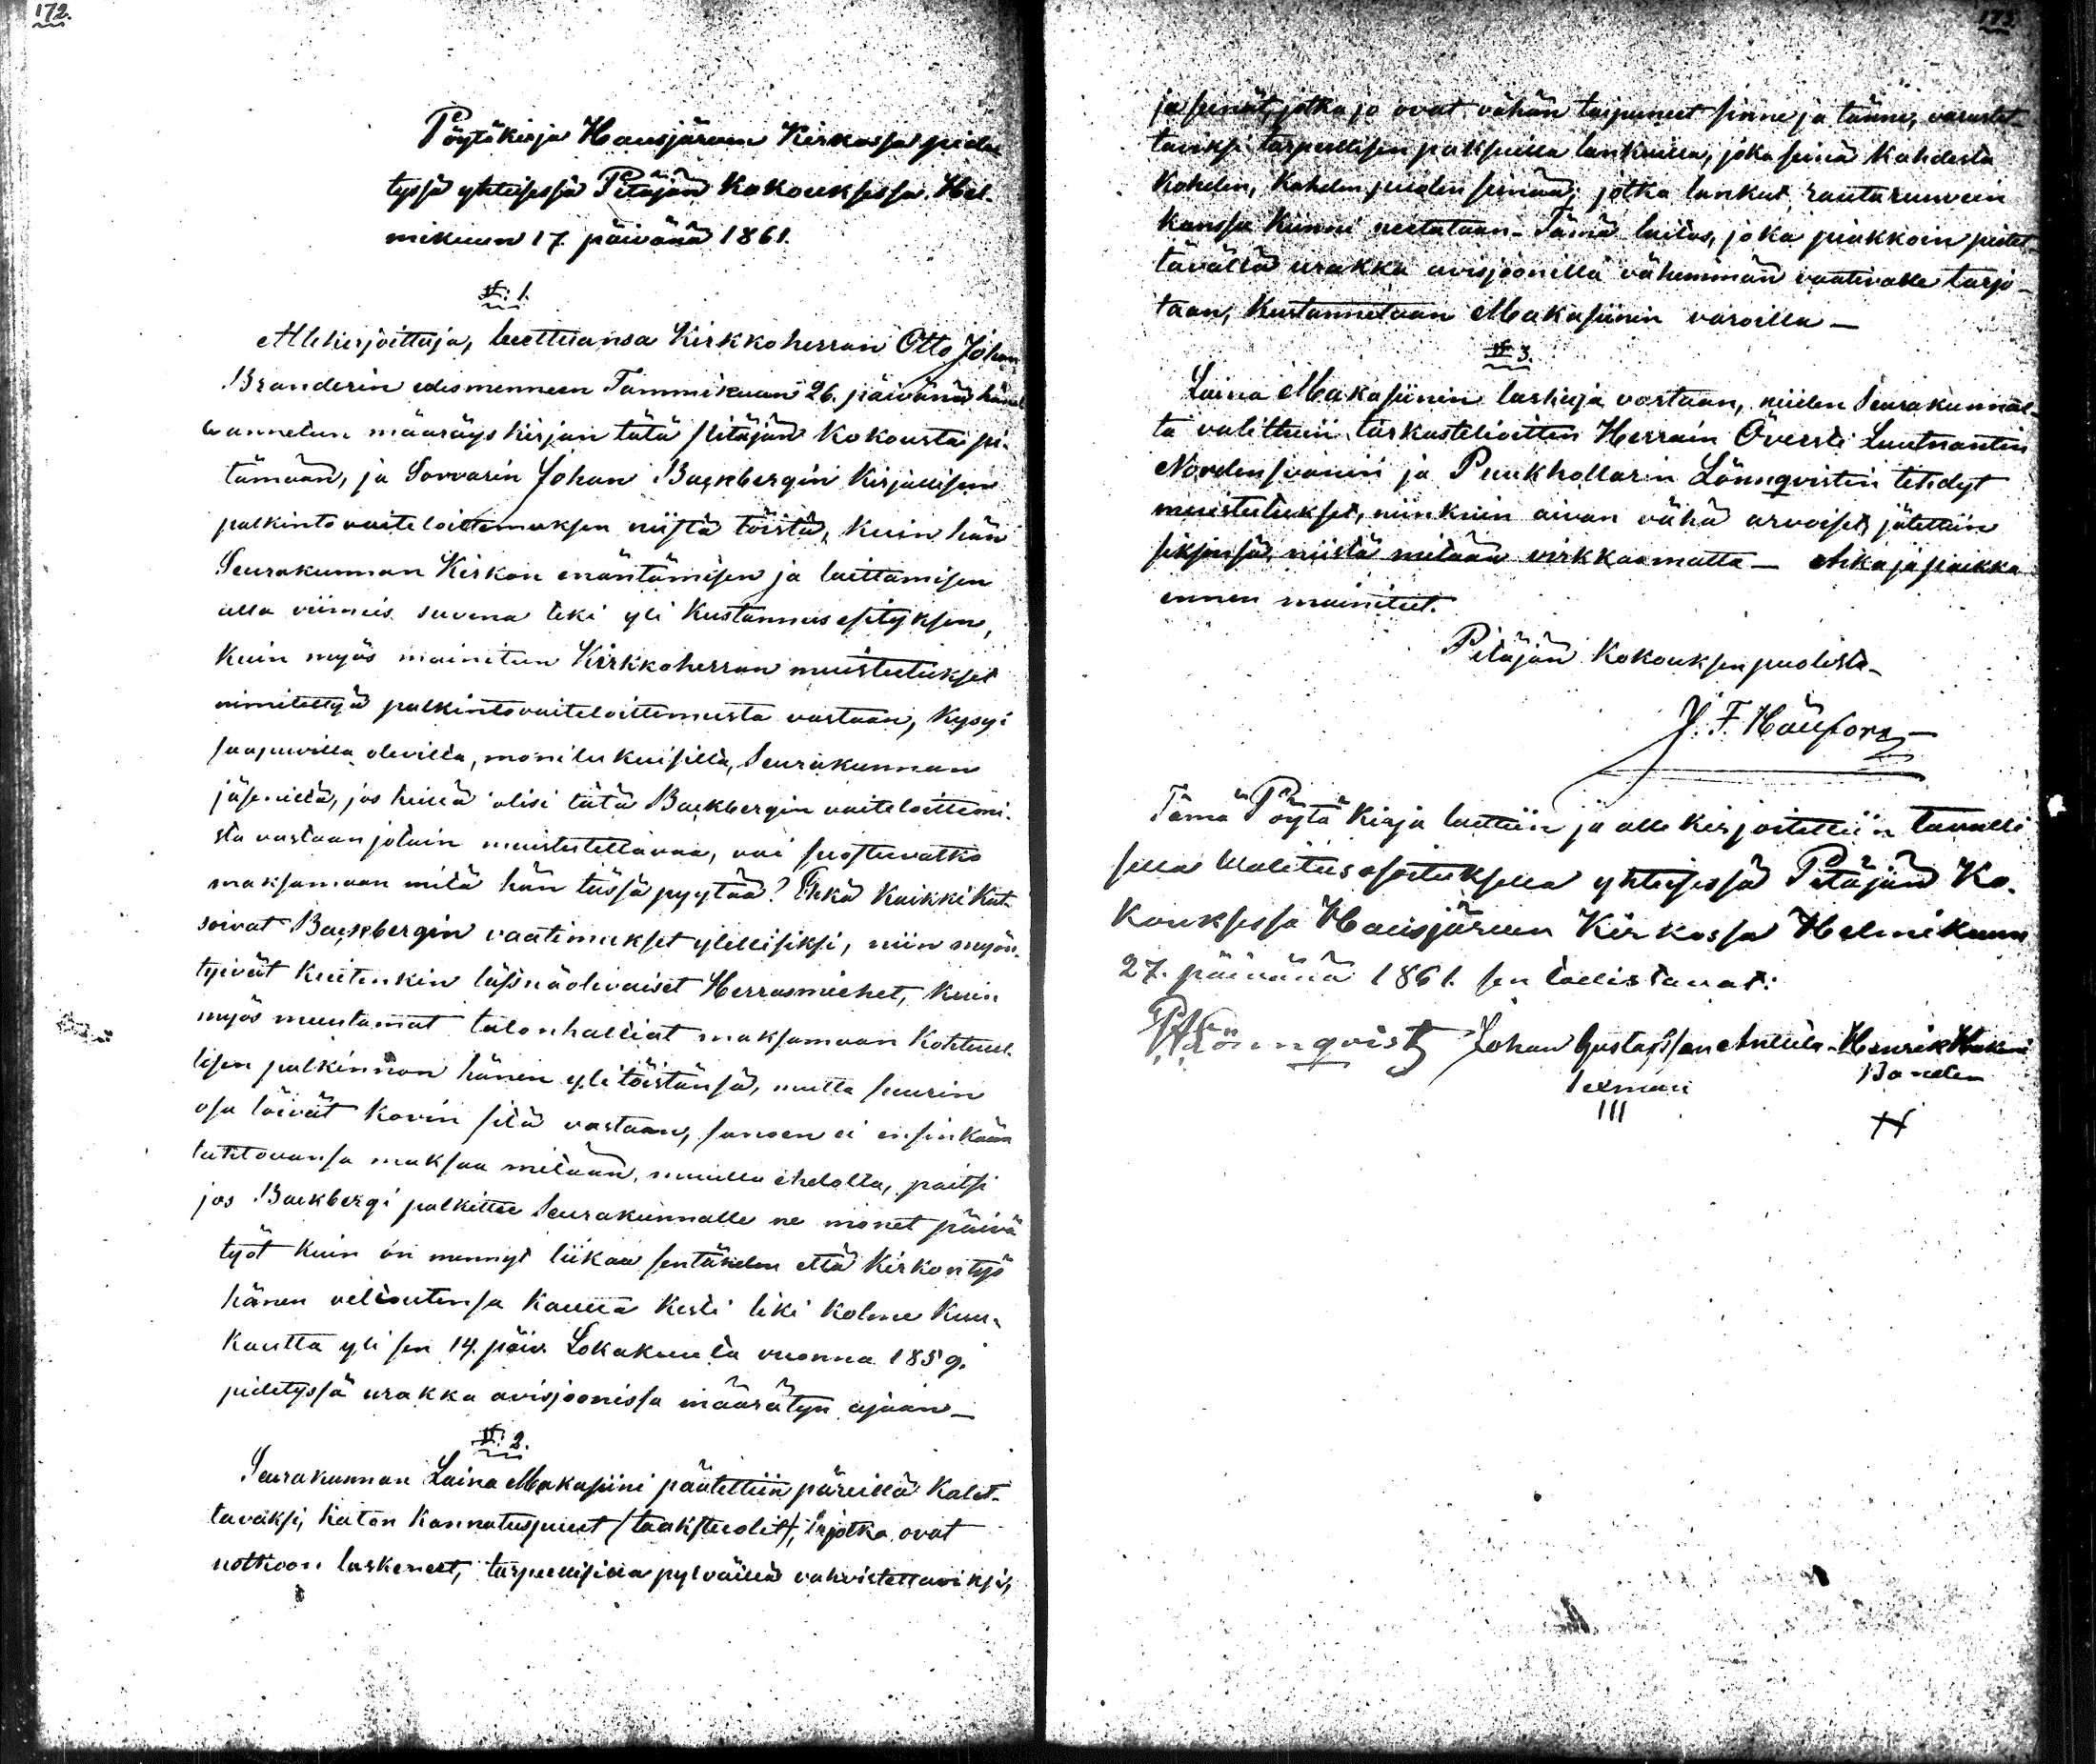 172.
Pöytäkirja Hausjärven Kirkossa pide
tyssä yhteisessä Pitäjän Kokouksessa Hel-
mikuun 17. päivänä 1861.
§: 1.
Allekirjoittaja, luettuansa Kirkkoherran Otto Johan
Branderin edesmenneen Tammikuun 26. päivänä hänel
le annetun määräyskirjan tätä Pitäjän Kokousta pi-
tämään, ja Sorvarin Johan Backbergin Kirjallisen
palkinto vaiteloittemuksen niistä töistä, kuin hän
Seurakunnan Kirkon enäntämisen ja laittamisen
alla viimeis suvena teki yli Kustannus esityksen,
kuin myös mainitun Kirkkoherran muistutukset
nimitettyä palkintovaiteloittemusta vastaan, kysyi
saapuvilla olevilta, monilukuisilta, Seurakunnan
jäseniltä, jos heillä olisi tätä Backbergin vaiteloittemi-
sta vastaan jotain muistutettavaa, vai suostuvatko
maksamaan mitä hän tässä pyytää? Ehkä kaikki kat-
soivat Backbergin vaatimukset ylellisiksi, niin myön-
tyivät kuitenkin läsnäolevaiset Herrasmiehet, kuin
myös muutamat talonhaltiat maksamaan Kohtuul-
lisen palkinnon hänen ylitöistänsä, mutta suurin
osa löivät kovin sitä vastaan, sanoen ei ensinkään
tahtovansa maksaa mitään, muulla ehdolla, paitsi
jos Backbergi palkittee Seurakunnalle ne monet päivä
työt kuin on mennyt liikaa sentähden että Kirkon työ
hänen velisutensa kautta kesti liki kolme kuu-
kautta yli sen 14. päiv. Lokakuuta vuonna 1859.
pidetyssä urakka avisjoonissa määrätyn ajan_
§: 2.
Seurakunnan Laina Makasiini päätettiin päreillä katet-
tavaksi, katon kannatuspuut (taakstuolit), jotka ovat
notkoon laskeneet, tarpeellisilla pylväillä vahvistettaviksi,
173.
ja seinät, jotka jo ovat vähän taipuneet sinne ja tänne, varustet-
taviksi tarpeellisen paksuilla lankuilla, joka seinä kahdesta
kohden, kahden puolen seinää; jotka lankut rautaruuvein
kanssa kiinni veetataan. Tämä laitos, joka piakkoin pidet-
tävällä urakka avisjoonilla vähemmän vaativalle tarjo-
taan, kustannetaan Makasiinin varoilla_
§ 3.
Laina Makasiinin laskuja vastaan, niiden Seurakunnal-
ta valittuin tarkastelioitten Herrain Översti Luutnantin
Nordensvanin ja Puukhollarin Lönnqvistin tehdyt
muistutukset, niinkuin aivan vähä arvoiset, jätettiin
siksensä, niistä mitään virkkaamatta_ Aika ja paikka
ennen mainitut.
Pitäjän Kokouksen puolesta_
J. F. Hällfors
Tämä Pöytäkirja luettiin ja allekirjoitettiin tavalli
sella Walitus osoituksella yhteisessä Pitäjän Ko-
kouksessa Hausjärven Kirkossa Helmikuun
27. päivänä 1861. sen todistavat:
Lönnqvist Johan Gustafsson Anttila Henrik
Sexman Bonden
III